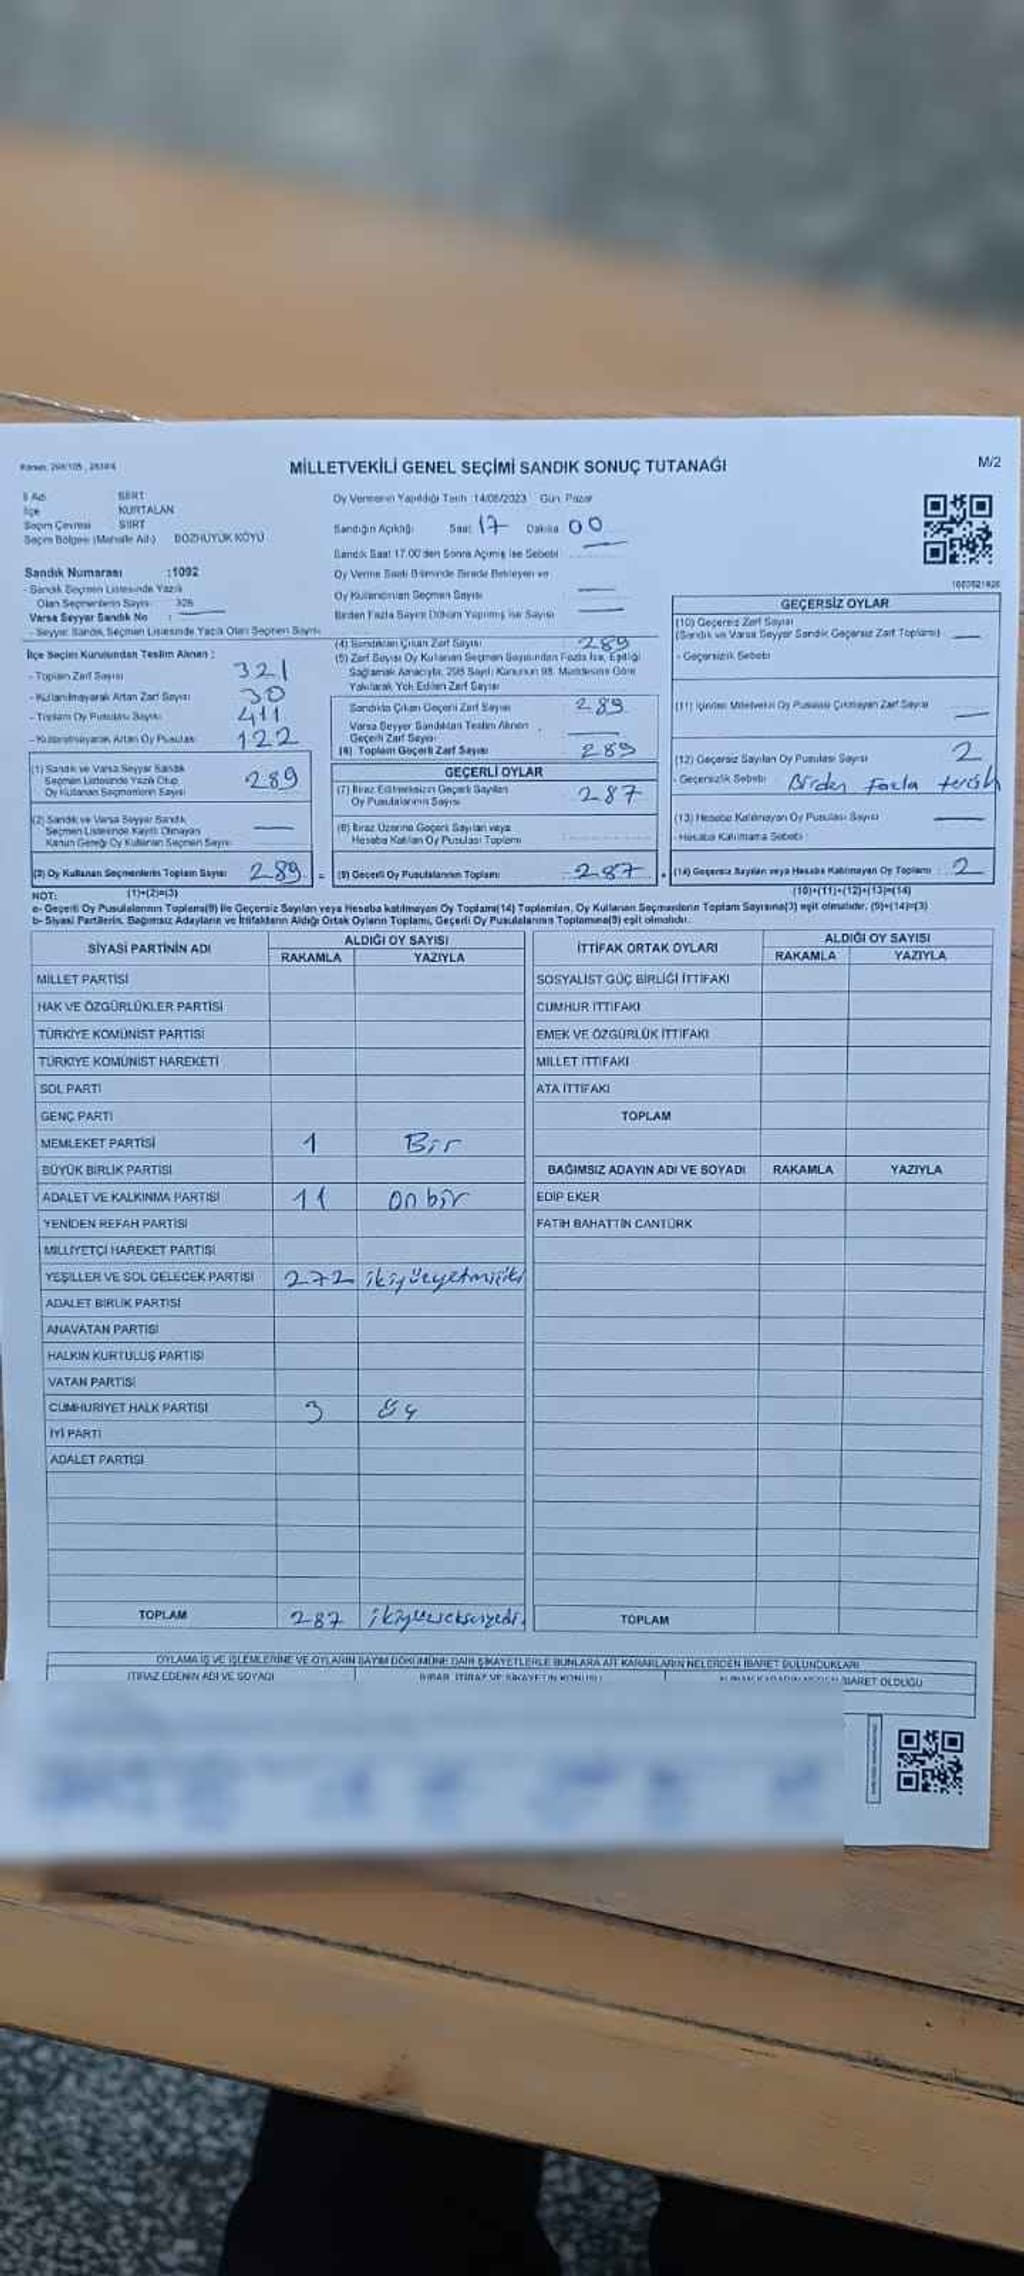 Kanun: 298/105, 2839/4
MİLLETVEKİLİ GENEL SEÇİMİ SANDIK SONUÇ TUTANAĞI
M/2
İl Adı SİİRT
İlçe KURTALAN
Seçim Çevresi SİİRT
Seçim Bölgesi (Mahalle Adı) BOZHÜYÜK KÖYÜ
Oy Vermenin Yapıldığı Tarih :14/05/2023 Gün: Pazar
Sandığın Açıldığı Saat 17 Dakika 00
Sandık Saat 17.00'den Sonra Açılmış İse Sebebi
Oy Verme Saati Bitiminde Sırada Bekleyen ve
Oy Kullandırılan Seçmen Sayısı —
Birden Fazla Sayım Döküm Yapılmış ise Sayısı —
Sandık Numarası :1092
- Sandık Seçmen Listesinde Yazılı
Olan Seçmenlerin Sayısı 326
Varsa Seyyar Sandık No :
- Seyyar Sandık Seçmen Listesinde Yazılı Olan Seçmen Sayısı
İlçe Seçim Kurulundan Teslim Alınan :
- Toplam Zarf Sayısı 321
- Kullanılmayarak Artan Zarf Sayısı 30
- Toplam Oy Pusulası Sayısı 411
- Kullanılmayarak Artan Oy Pusulası 122
(1) Sandık ve Varsa Seyyar Sandık
Seçmen Listesinde Yazılı Olup
Oy Kullanan Seçmenlerin Sayısı 289
(2) Sandık ve Varsa Seyyar Sandık
Seçmen Listesinde Kayıtlı Olmayan
Kanun Gereği Oy Kullanan Seçmen Sayısı —
(3) Oy Kullanan Seçmenlerin Toplam Sayısı 289 =
(4) Sandıktan Çıkan Zarf Sayısı 289
(5) Zarf Sayısı Oy Kullanan Seçmen Sayısından Fazla İse, Eşitliği
Sağlamak Amacıyla, 298 Sayılı Kanunun 98. Maddesine Göre
Yakılarak Yok Edilen Zarf Sayısı
Sandıkta Çıkan Geçerli Zarf Sayısı 289
Varsa Seyyar Sandıktan Teslim Alınan
Geçerli Zarf Sayısı —
(6) Toplam Geçerli Zarf Sayısı 289
GEÇERLİ OYLAR
(7) İtiraz Edilmeksizin Geçerli Sayılan
Oy Pusulalarının Sayısı 287
(8) İtiraz Üzerine Geçerli Sayılan veya
Hesaba Katılan Oy Pusulası Toplamı
(9) Geçerli Oy Pusulalarının Toplamı 287 +
1003521926
GEÇERSİZ OYLAR
(10) Geçersiz Zarf Sayısı
(Sandık ve Varsa Seyyar Sandık Geçersiz Zarf Toplamı) —
- Geçersizlik Sebebi
(11) İçinden Milletvekili Oy Pusulası Çıkmayan Zarf Sayısı —
(12) Geçersiz Sayılan Oy Pusulası Sayısı 2
- Geçersizlik Sebebi Birden fazla tercih
(13) Hesaba Katılmayan Oy Pusulası Sayısı —
- Hesaba Katılmama Sebebi :
(14) Geçersiz Sayılan veya Hesaba Katılmayan Oy Toplamı 2
NOT: (1)+(2)=(3) (10)+(11)+(12)+(13)=(14)
a- Geçerli Oy Pusulalarının Toplamı(9) ile Geçersiz Sayılan veya Hesaba katılmayan Oy Toplamı(14) Toplamları, Oy Kullanan Seçmenlerin Toplam Sayısına(3) eşit olmalıdır. (9)+(14)=(3)
b- Siyasi Partilerin, Bağımsız Adayların ve İttifakların Aldığı Ortak Oyların Toplamı, Geçerli Oy Pusulalarının Toplamına(9) eşit olmalıdır.
SİYASİ PARTİNİN ADI ALDIĞI OY SAYISI
RAKAMLA YAZIYLA
MİLLET PARTİSİ
HAK VE ÖZGÜRLÜKLER PARTİSİ
TÜRKİYE KOMÜNİST PARTİSİ
TÜRKİYE KOMÜNİST HAREKETİ
SOL PARTİ
GENÇ PARTİ
MEMLEKET PARTİSİ 1 Bir
BÜYÜK BİRLİK PARTİSİ
ADALET VE KALKINMA PARTİSİ 11 onbir
YENİDEN REFAH PARTİSİ
MİLLİYETÇİ HAREKET PARTİSİ
YEŞİLLER VE SOL GELECEK PARTİSİ 272 ikiyüzyetmişiki
ADALET BİRLİK PARTİSİ
ANAVATAN PARTİSİ
HALKIN KURTULUŞ PARTİSİ
VATAN PARTİSİ
CUMHURİYET HALK PARTİSİ 3 üç
İYİ PARTİ
ADALET PARTİSİ
TOPLAM 287 ikiyüzseksenyedi
İTTİFAK ORTAK OYLARI ALDIĞI OY SAYISI
RAKAMLA YAZIYLA
SOSYALİST GÜÇ BİRLİĞİ İTTİFAKI
CUMHUR İTTİFAKI
EMEK VE ÖZGÜRLÜK İTTİFAKI
MİLLET İTTİFAKI
ATA İTTİFAKI
TOPLAM
BAĞIMSIZ ADAYIN ADI VE SOYADI RAKAMLA YAZIYLA
EDİP EKER
FATİH BAHATTİN CANTÜRK
TOPLAM
OYLAMA İŞ VE İŞLEMLERİNE VE OYLARIN SAYIM DÖKÜMÜNE DAİR ŞİKAYETLERLE BUNLARA AİT KARARLARIN NELERDEN İBARET BULUNDUKLARI
İTİRAZ EDENİN ADI VE SOYADI
İHBAR, İTİRAZ VE ŞİKAYETİN KONUSU
İBARET OLDUĞU